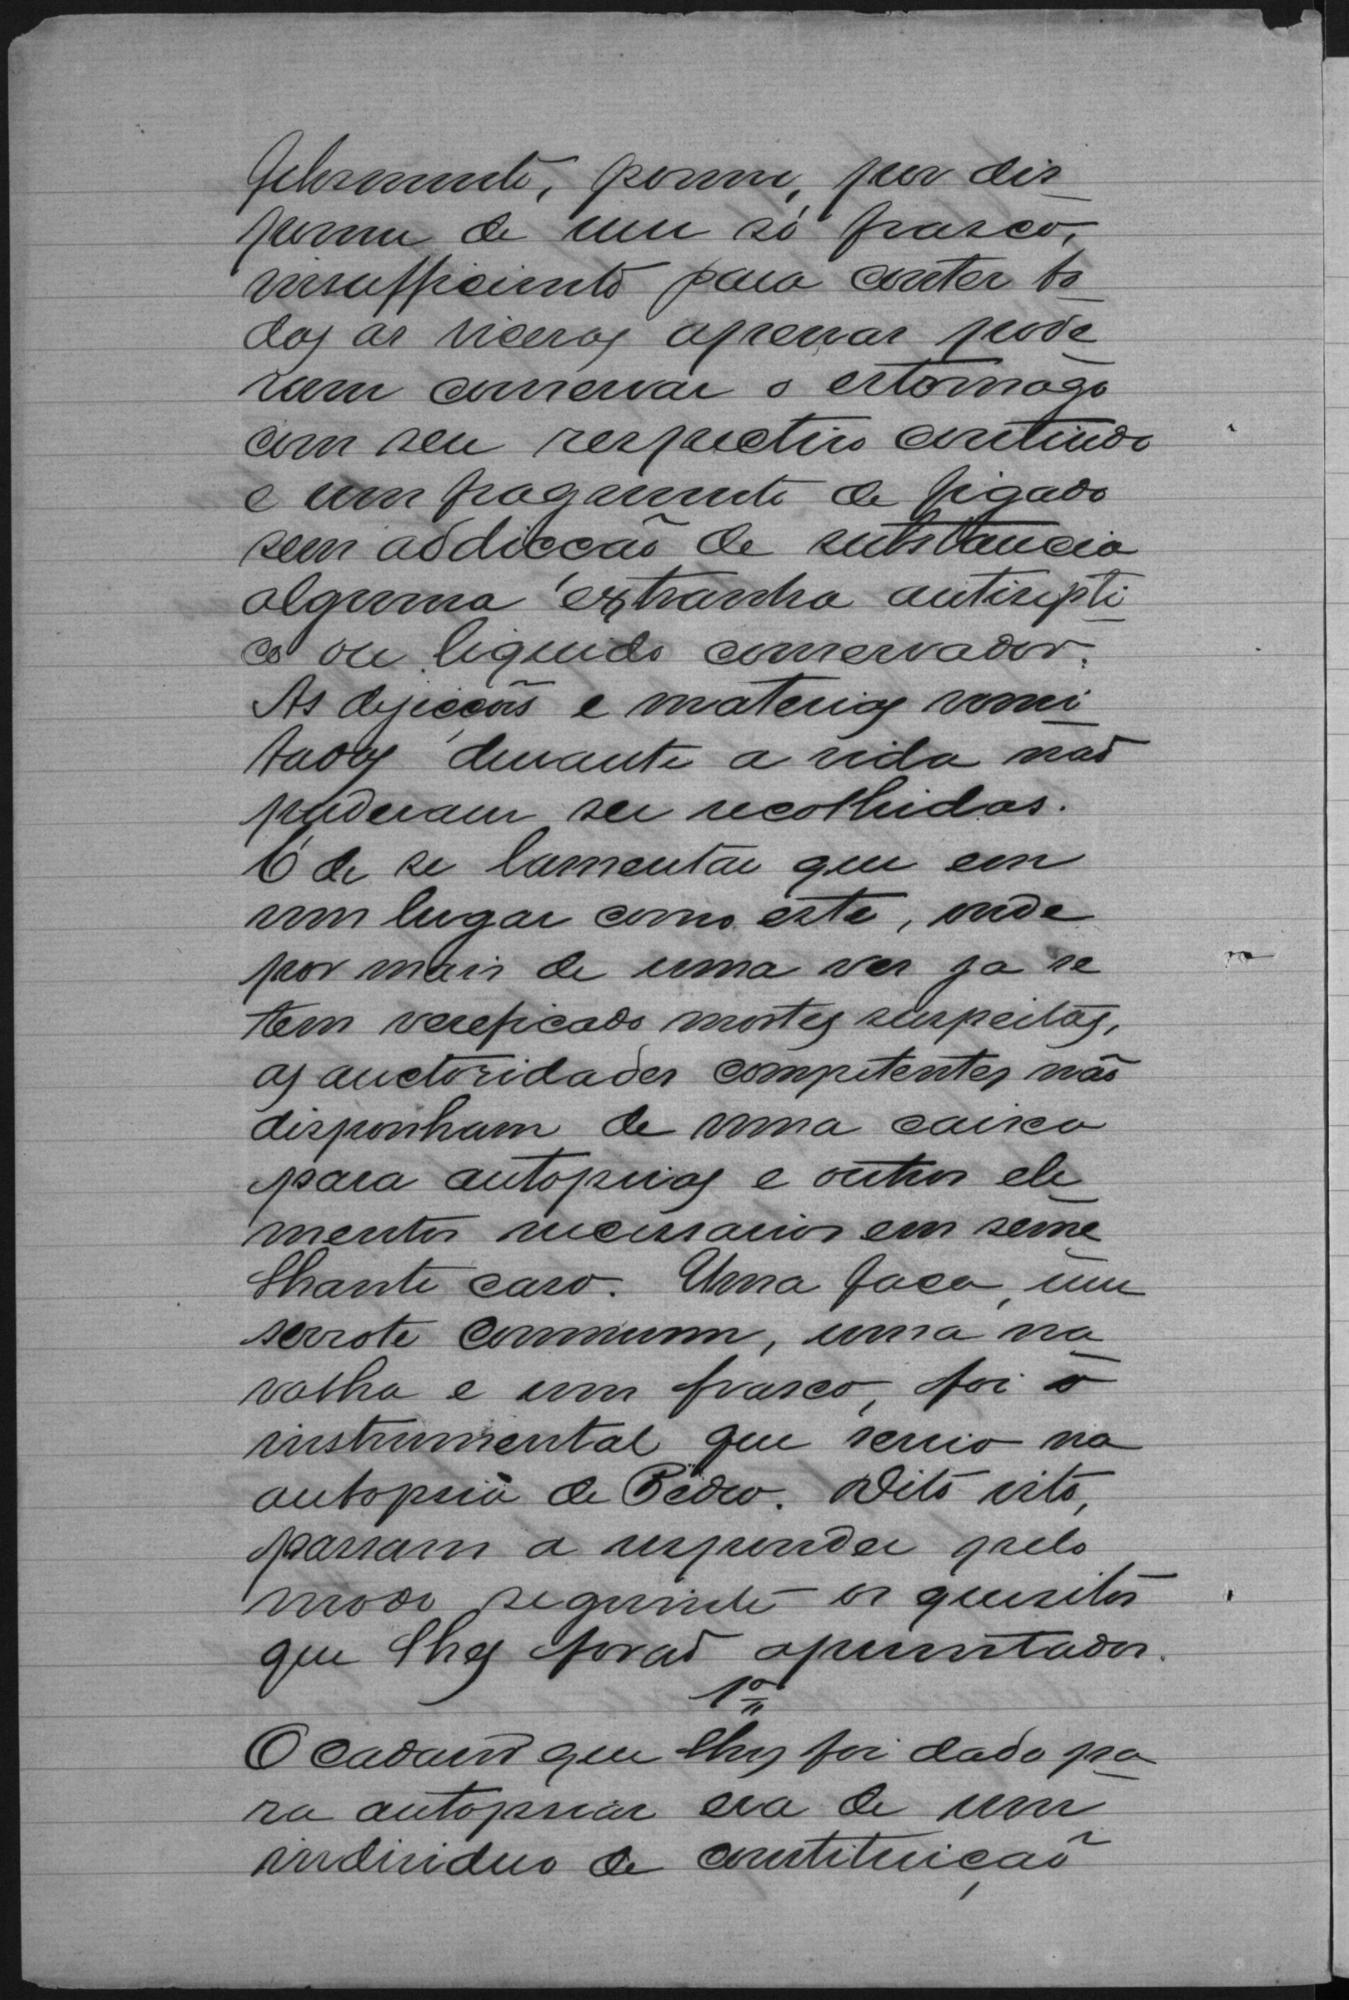 Infelizmente, porem, por dis
porem de um só frasco,
insufficiente para conter to
das as viceras apenas pode
ram conservar o estomago
com seu respectivo conteúdo
e um fragmento de figado
sem addicção de substancia
alguma extranha antisepti
co ou liquido conservador.
As dejecções e materias vomi
tadas durante a vida não
puderam ser recolhidas.
É de se lamentar que em
um lugar como este, onde
por mais de uma ves ja se
tem vereficado mortes suspeitas,
as auctoridades competentes não
disponham de uma caixa
para autopsias e outros ele
mentos necessarios em seme
lhante caso. Uma faca, um
serrote commum, uma na
valha e um frasco, foi o
instrumental que servio na
autopsia de Pedro. Dito isto,
passam a responder pelo
modo seguinte os quesitos
que lhes forão apresentados.
1º
O cadaver que lhes foi dado pa
ra autopsiar era de um
individuo de constituição